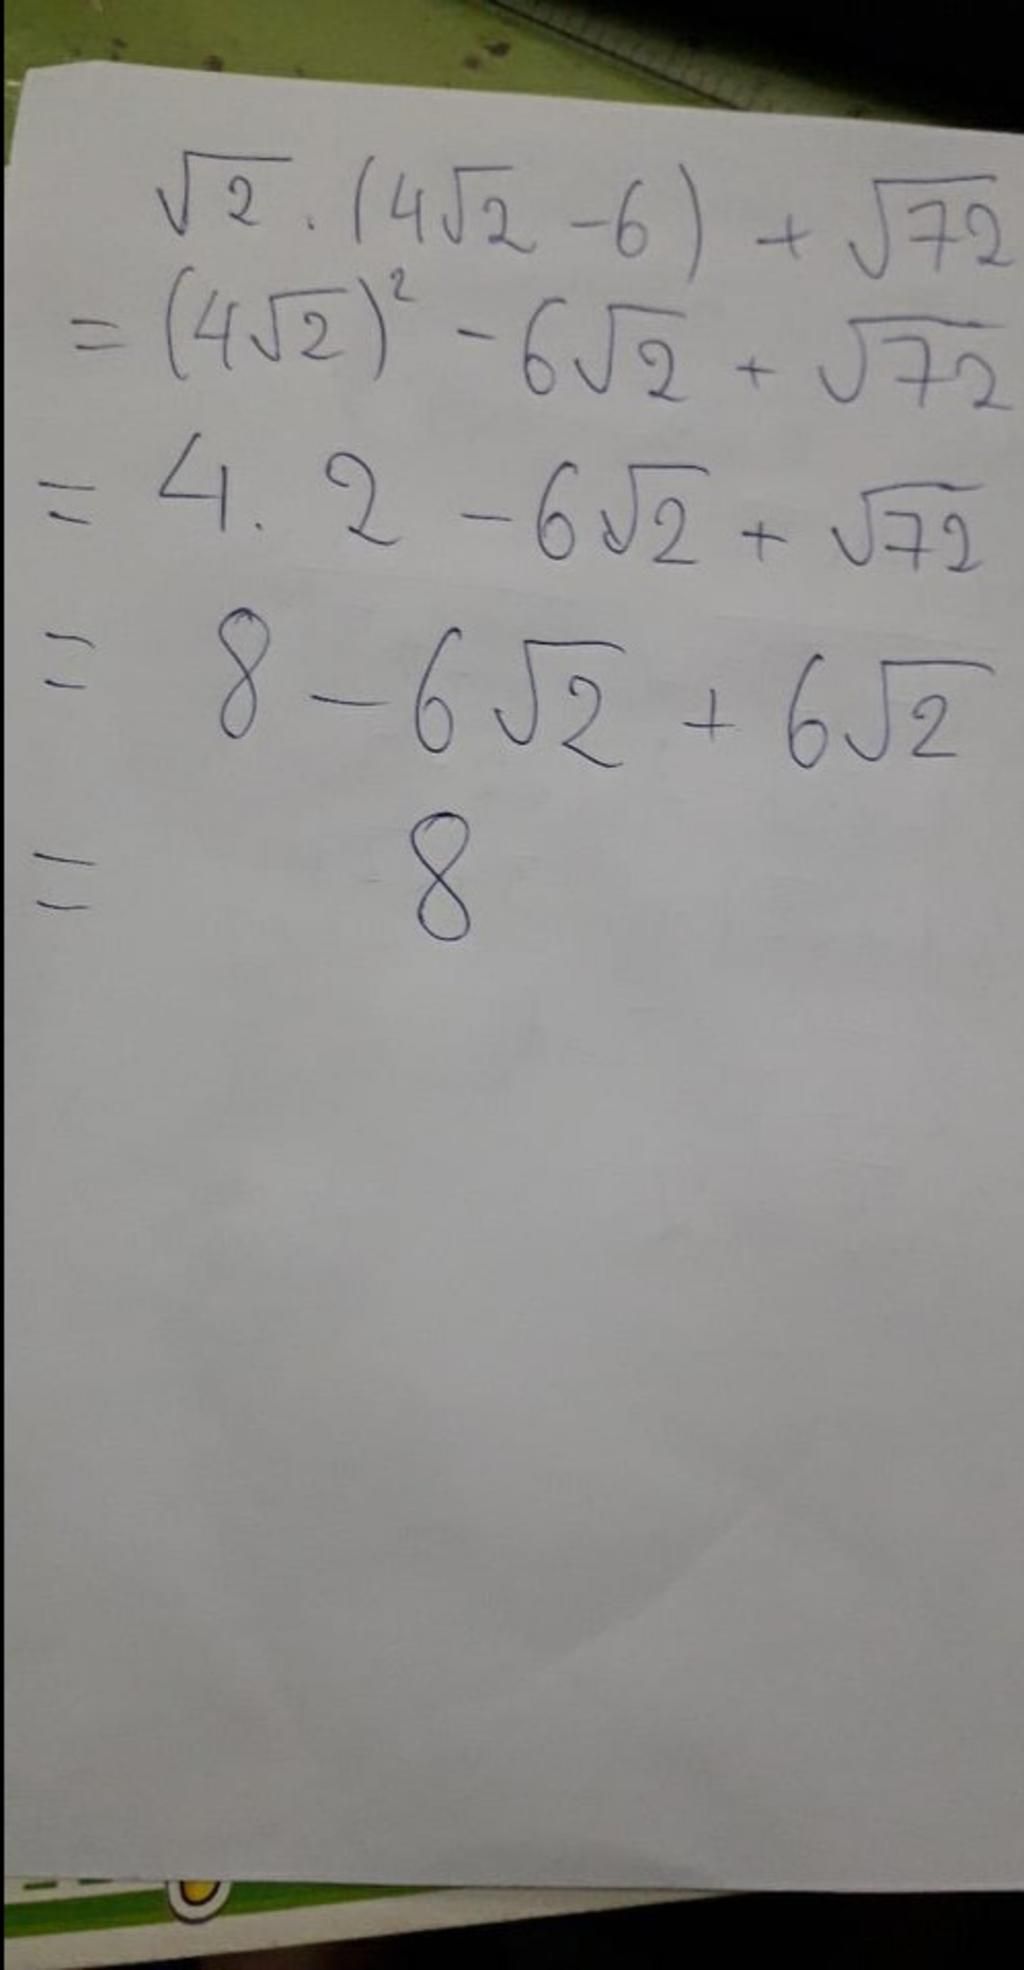 √2 . (4√2 - 6) + √72
= (4√2)² - 6√2 + √72
= 4. 2 - 6√2 + √72
= 8 - 6√2 + 6√2
= 8